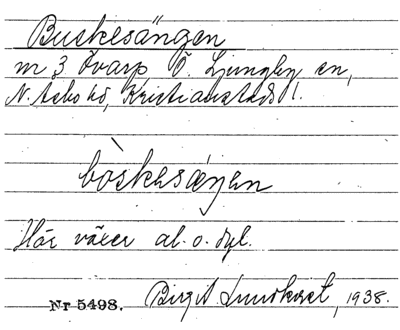 Buskesängen
m 3 Övarp, Ö. Ljungby sn,
N. Åsbo hd, Kristianstads l.
bòskesáŋen
Här växer al o. dyl.
Nr 5498. Birgit Lundkvist, 1938.